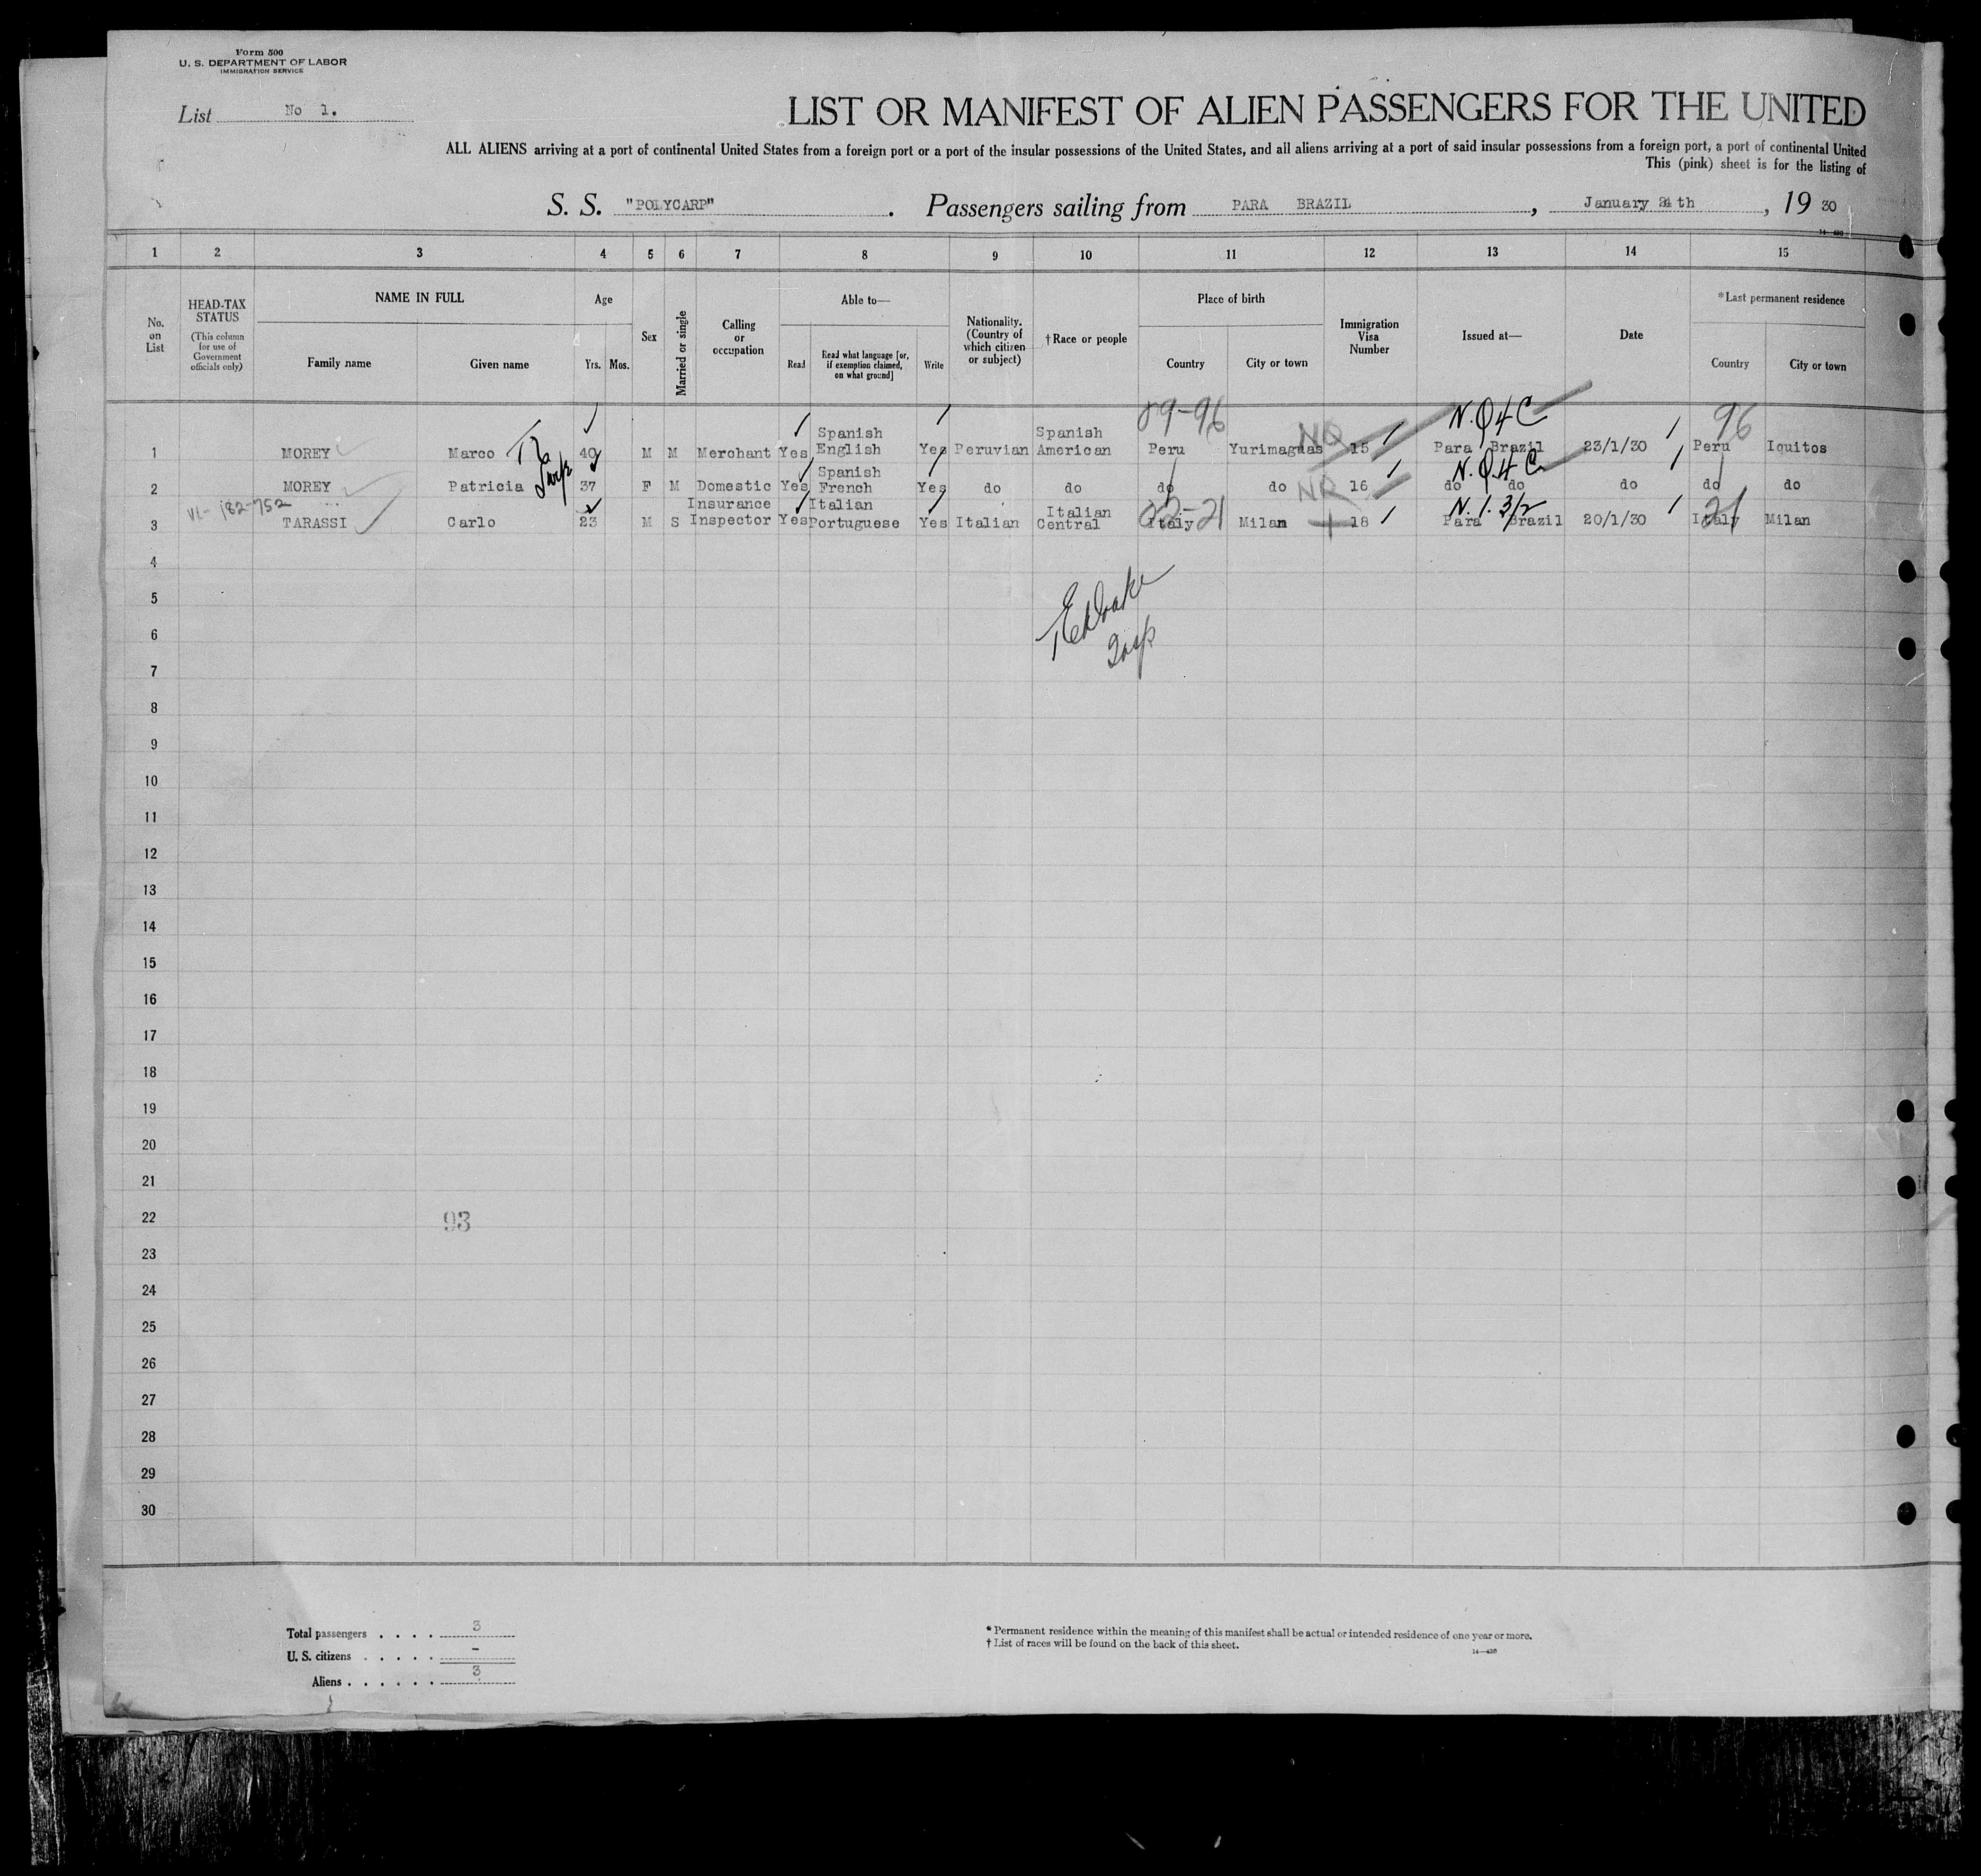 Form 500
U. S. DEPARTMENT OF LABOR
IMMIGRATION SERVICE
List No 1.
LIST OR MANIFEST OF ALIEN PASSENGERS FOR THE UNITED
ALL ALIENS arriving at a port of continental United States from a foreign port or a port of the insular possessions of the United States, and all aliens arriving at a port of said insular possessions from a foreign port, a port of continental United
This (pink) sheet is for the listing of
S. S. "POLYCARP". Passengers sailing from PARA BRAZIL, January 24th, 19 30
14—430
1 2 3 4 5 6 7 8 9 10 11 12 13 14 15
No. on List
HEAD-TAX STATUS (This column for use of Government officials only)
NAME IN FULL
Family name Given name
Age
Yrs. Mos.
Sex
Married or single
Calling or occupation
Able to—
Read
Read what language [or, if exemption claimed, on what ground]
Write
Nationality. (Country of which citizen or subject)
†Race or people
Place of birth
Country City or town
Immigration Visa Number
Issued at—
Date
*Last permanent residence
Country City or town
09-96 N.Q4C 96
1 MOREY Marco 40 M M Merchant Yes Spanish English Yes Peruvian Spanish American Peru Yurimaguas NQ 15 Para Brazil 23/1/30 Peru Iquitos
N.Q4C
2 MOREY Patricia 37 F M Domestic Yes Spanish French Yes do do do do 16 do do do do do
VL-182-752
22-21 N.1.3/2 21
3 TARASSI Carlo 23 M S Insurance Inspector Yes Italian Portuguese Yes Italian Italian Central Italy Milan 18 Para Brazil 20/1/30 Italy Milan
4
5
6
Insp
7
8
9
10
11
12
13
14
15
16
17
18
19
20
21
22
93
23
24
25
26
27
28
29
30
Total passengers . . . . 3
U. S. citizens . . . . . -
Aliens . . . . . . 3
* Permanent residence within the meaning of this manifest shall be actual or intended residence of one year or more.
† List of races will be found on the back of this sheet.
14—430